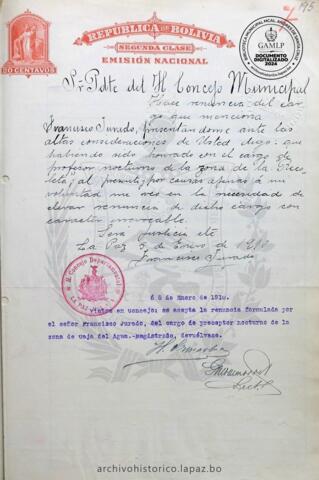 195
REPUBLICA DE BOLIVIA
SEGUNDA CLASE
EMISIÓN NACIONAL
50 CENTAVOS
GAMLP
DOCUMENTO DIGITALIZADO
2024
Sr Pdte del H. Concejo Municipal
Hace renuncia del car
go que menciona
Francisco Jurado, presentándome ante las
altas consideraciones de Usted digo: que
habiendo sido honrado con el cargo de
profesor nocturno de la zona de la
al presente, por causas ajenas á mi
voluntad me veo en la necesidad de
elevar renuncia de dicho cargo con
caracter irrevocable.
Será justicia etc
La Paz 5 de Enero de
Francisco Jurado
6 de Enero de 1910.
Vistos en concejo: se acepta la renuncia formulada por
el señor Francisco Jurado, del cargo de preceptor nocturno de la
zona de Caja del Agua.-Registrado, devuélvase.
archivohistorico.lapaz.bo